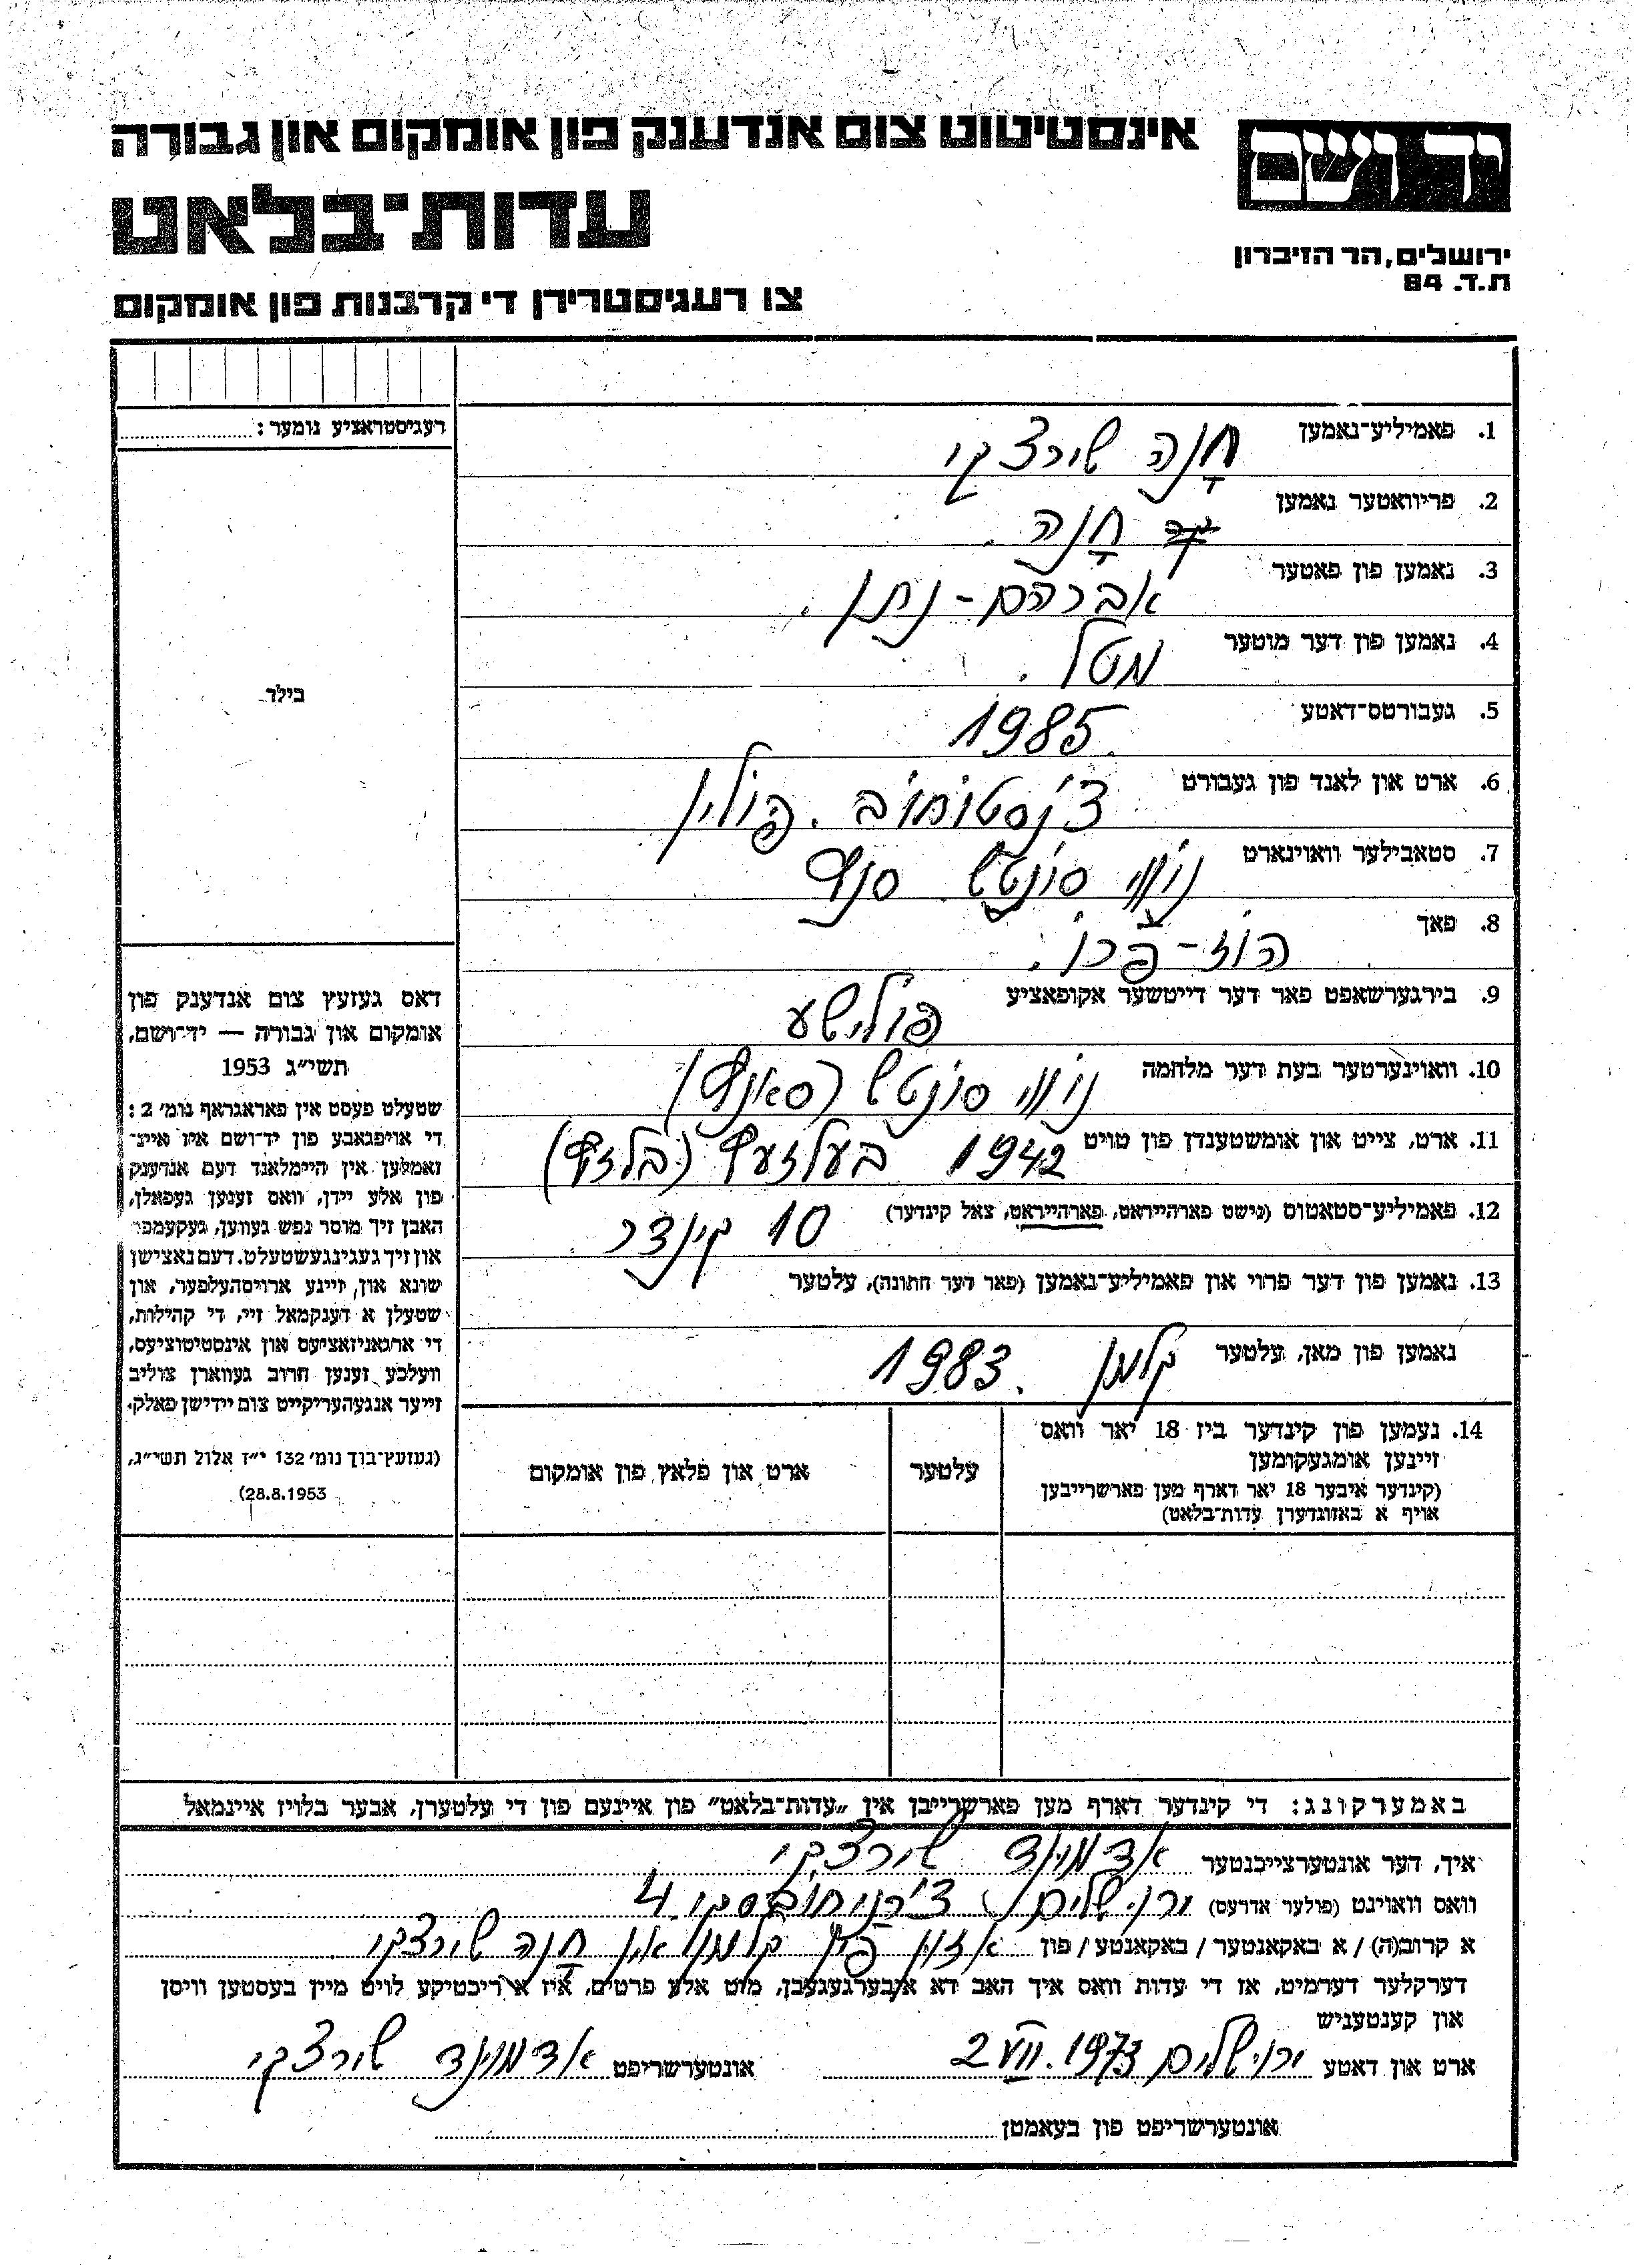 יד ושם
אינסטיטוט צום אנדענק פון אומקום און גבורה
עדות־בלאט
ירושלים, הר הזיכרון
ת.ד. 84
צו רעגיסטרירן די קרבנות פון אומקום
רעגיסטראציע נומער:
בילד
1. פאמיליע־נאמען חָנה שורצקי
2. פריוואטער נאמען חָנה.
3. נאמען פון פאטער אברהם-נתן.
4. נאמען פון דער מוטער מטל.
5. געבורטס־דאטע 1985.
6. ארט און לאנד פון געבורט צ'נסטוחוב. פולין
7. סטאבילער וואוינארט נוֹוי סוֹנטש
8. פאך
9. בירגערשאפט פאר דער דייטשער אקופאציע פולישע
10. וואוינערטער בעת דער מלחמה נוֹוי סוֹנטש
11. ארט, צייט און אומשטענדן פון טויט 1942 בעלזעץ (בלזץ)
12. פאמיליע־סטאטוס (נישט פארהייראט, פארהייראט, צאל קינדער) 10 קינדר
13. נאמען פון דער פרוי און פאמיליע־נאמען (פאר דער חתונה), עלטער
נאמען פון מאן, עלטער קלמן 1983.
14. נעמען פון קינדער ביז 18 יאר וואס
זיינען אומגעקומען
(קינדער איבער 18 יאר דארף מען פארשרייבן
אויף א באזונדערן עדות־בלאט)
עלטער
ארט און פלאץ פון אומקום
דאס געזעץ צום אנדענק פון
אומקום און גבורה — יד־ושם,
תשי״ג 1953
שטעלט פעסט אין פאראגראף נומ׳ 2:
די אויפגאבע פון יד־ושם איז איינ־
זאמלען אין היימלאנד דעם אנדענק
פון אלע יידן, וואס זענען געפאלן,
האבן זיך מוסר נפש געווען, געקעמפט
און זיך געגינגעשטעלט. דעם נאצישן
שונא און, זיינע ארויסהעלפער, און
שטעלן א דענקמאל זיי, די קהילות,
די ארגאניזאציעס און אינסטיטוציעס,
וועלכע זענען חרוב געווארן צוליב
זייער אנגעהעריקייט צום יידישן פאלק.
(געזעץ־בוך נומ׳ 132 י״ז אלול תשי״ג,
28.8.1953)
באמערקונג: די קינדער דארף מען פארשרייבן אין „עדות־בלאט״ פון איינעם פון די עלטערן, אבער בלויז איינמאל
איך, דער אונטערצייכנטער אדמונד שורצקי
וואס וואוינט (פולער אדרעס) ירושלים צ'רניחובסקי 4
א קרוב(ה) / א באקאנטער / באקאנטע / פון קלמן און חָנה שורצקי.
דערקלער דערמיט, אז די עדות וואס איך האב דא איבערגעגעבן, מוט אלע פרטים, איז א ריכטיקע לויט מיין בעסטען וויסן
און קענטעניש
ארט און דאטע ירושלים 2 VII. 1973 אונטערשריפט אדמונד שורצקי
אונטערשריפט פון בעאמטן